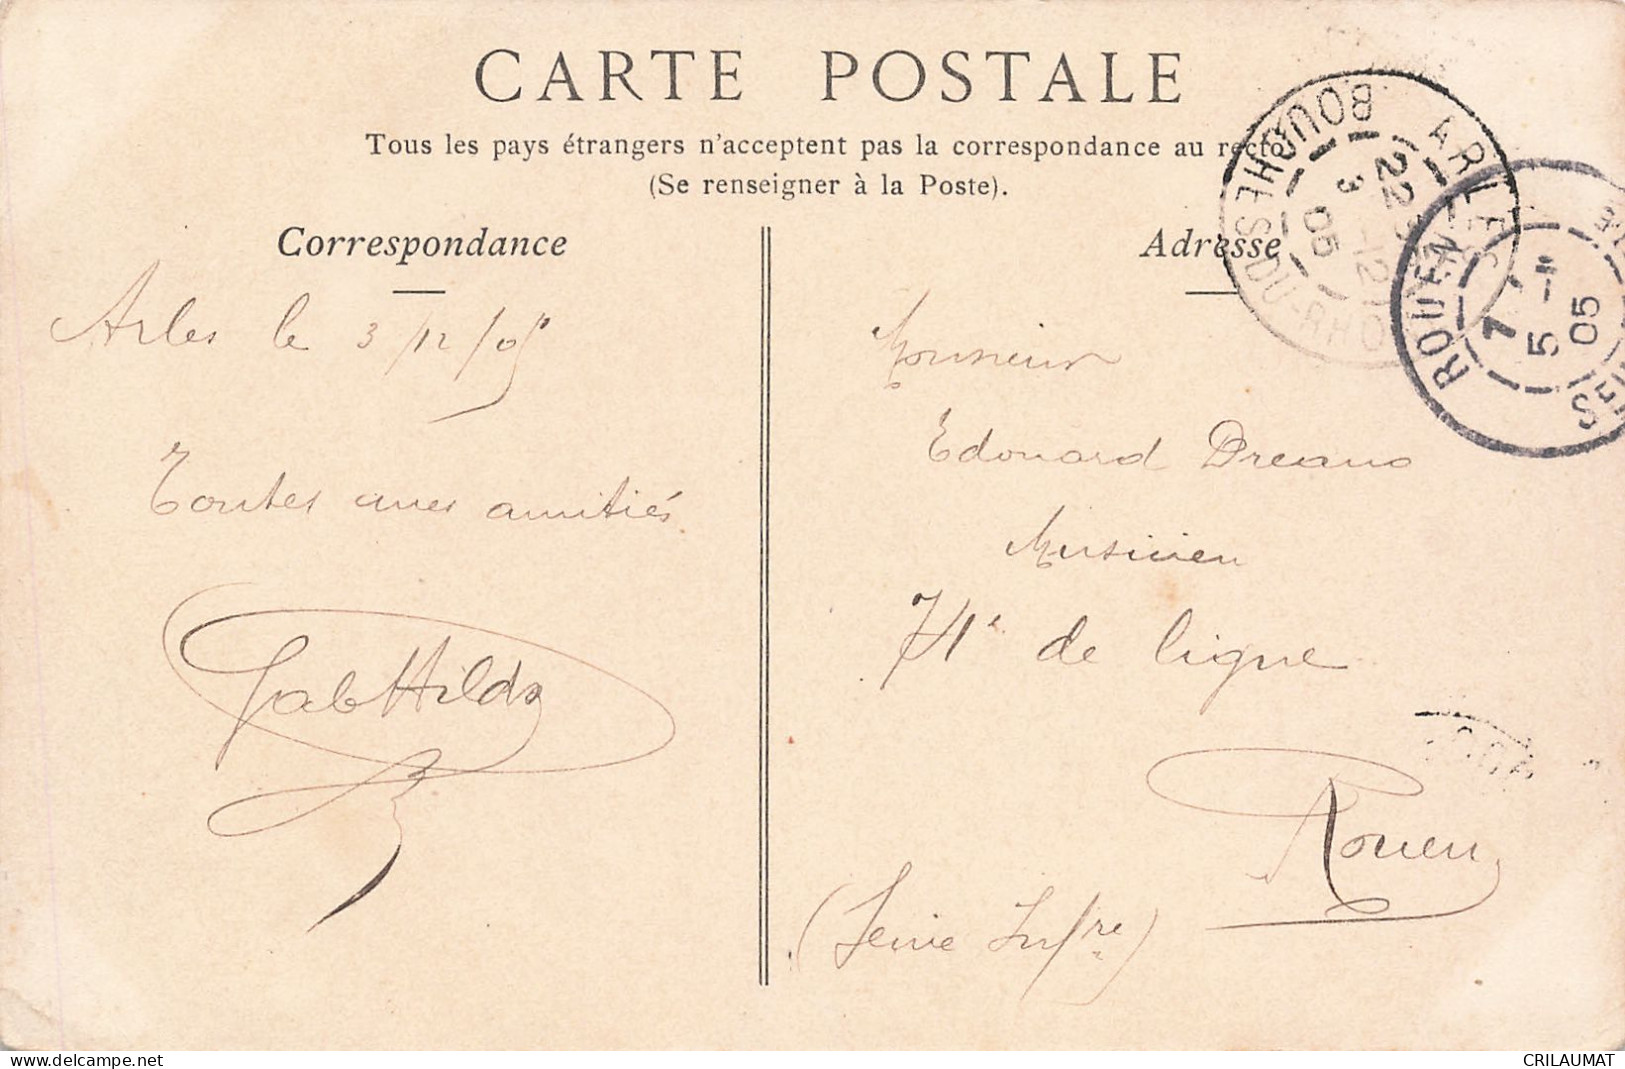 CARTE POSTALE
Tous les pays étrangers n'acceptent pas la correspondance au recto
(Se renseigner à la Poste).
Correspondance
Arles le 3/12/05
Toutes mes amitiés
Adresse
Monsieur
Edouard Dreano
Musicien
74e de ligne
Rouen
(Seine Infre)
ARLES
BOUCHES-DU-RHO
22
3 -12
05
ROUEN
7
5 -12
05
www.delcampe.net
CRILAUMAT